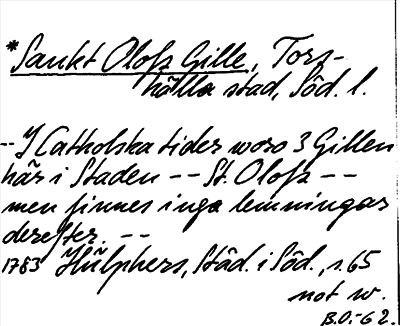 *Sankt Olofs Gille, Tors-
hälla stad, Söd. l.
-- I Catholska tider woro 3 Gillen
här i Staden -- St. Olofs --
men finnes inga lemningar
derefter. --
1783 Hülphers, Städ. i Söd., s. 65
not w.
B.O.-62.